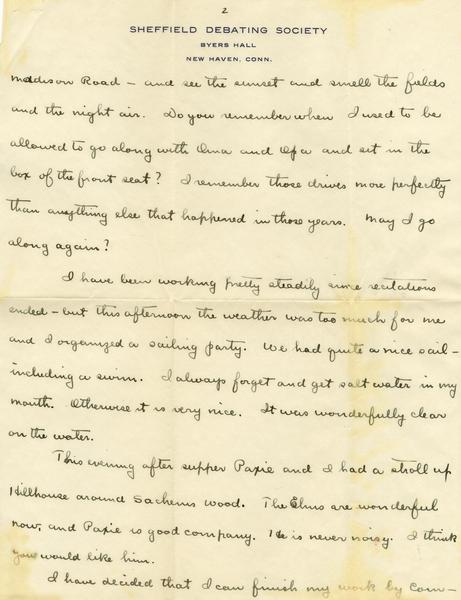 2
SHEFFIELD DEBATING SOCIETY
BYERS HALL
NEW HAVEN, CONN.
Maddison Road – and see the sunset and smell the fields
and the night air. Do you remember when I used to be
allowed to go along with Oma and Opa and sit in the
box of the front seat? I remember those drives more perfectly
than anything else that happened in those years. May I go
along again?
I have been working pretty steadily since recitations
ended – but this afternoon the weather was too much for me
and I organized a sailing party. We had quite a nice sail –
including a swim. I always forget and get salt water in my
mouth. Otherwise it is very nice. It was wonderfully clear
on the water.
This evening after supper Paxie and I had a stroll up
Hillhouse around Sachems wood. The Elms are wonderful
now, and Paxie is good company. He is never noisy. I think
you would like him.
I have decided that I can finish my work by com–